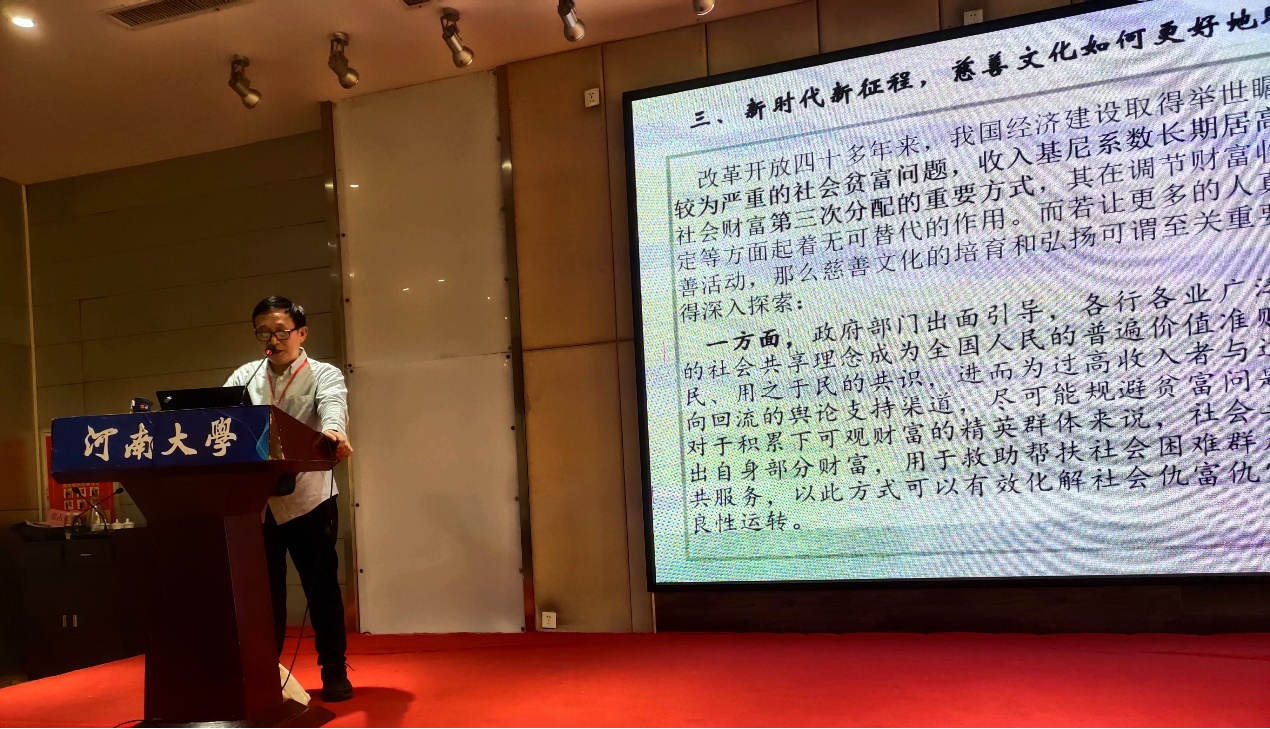 三、新时代新征程，慈善文化如何更好地
改革开放四十多年来，我国经济建设取得举世瞩
较为严重的社会贫富问题，收入基尼系数长期居高
社会财富第三次分配的重要方式，其在调节财富收
定等方面起着无可替代的作用。而若让更多的人真
善活动，那么慈善文化的培育和弘扬可谓至关重要
得深入探索：
一方面，政府部门出面引导，各行各业广泛
的社会共享理念成为全国人民的普遍价值准则
民、用之于民的共识，进而为过高收入者与
向回流的舆论支持渠道，尽可能规避贫富问题
对于积累下可观财富的精英群体来说，社会
出自身部分财富，用于救助帮扶社会困难群
共服务，以此方式可以有效化解社会仇富仇
良性运转。
河南大學